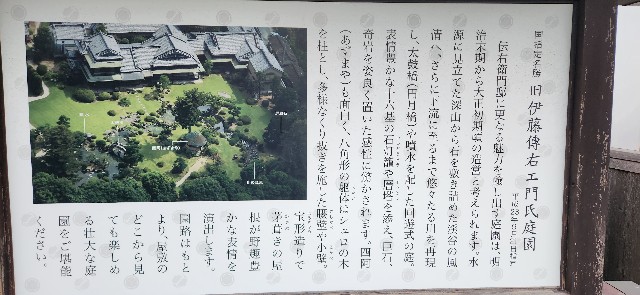 国指定名勝 旧伊藤傳右エ門氏庭園
平成23年9月21日指定
伝右衛門邸に更なる魅力を醸し出す庭園は、明
治末期から大正初期頃の造営と考えられます。水
源に見立てた深山から石を敷き詰めた渓谷の風
情へ、さらに下流に至るまで悠々たる川を再現
し、太鼓橋（円月橋）や噴水を配した回遊式の庭。
表情豊かな十六基の石灯籠や層塔を添え、巨石、
奇岩を姿良く置いた感性に驚かされます。四阿
（あずまや）も面白く、八角形の躯体はシュロの木
を柱とし、多様なくり抜きを施した腰壁や小壁。
宝形造りで
茅葺きの屋
根が野趣豊
かな表情を
演出します。
園路はもと
より、屋敷の
どこから見
ても楽しめ
る壮大な庭
園をご堪能
ください。